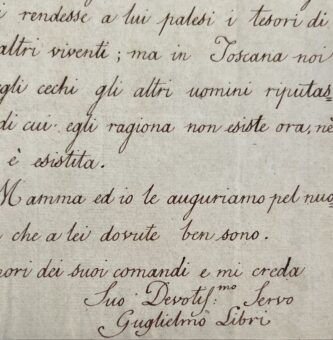 i rendesse a lui palesi i tesori di
altri viventi ; ma in Toscana noi
egli cechi gli altri uomini riputas
di cui egli ragiona non esiste ora, nè
è esistita.
Mamma ed io le auguriamo pel nuo
che a lei dovute ben sono.
nori dei suoi comandi e mi creda
Suo Devotiss.mo Servo
Guglielmo Libri